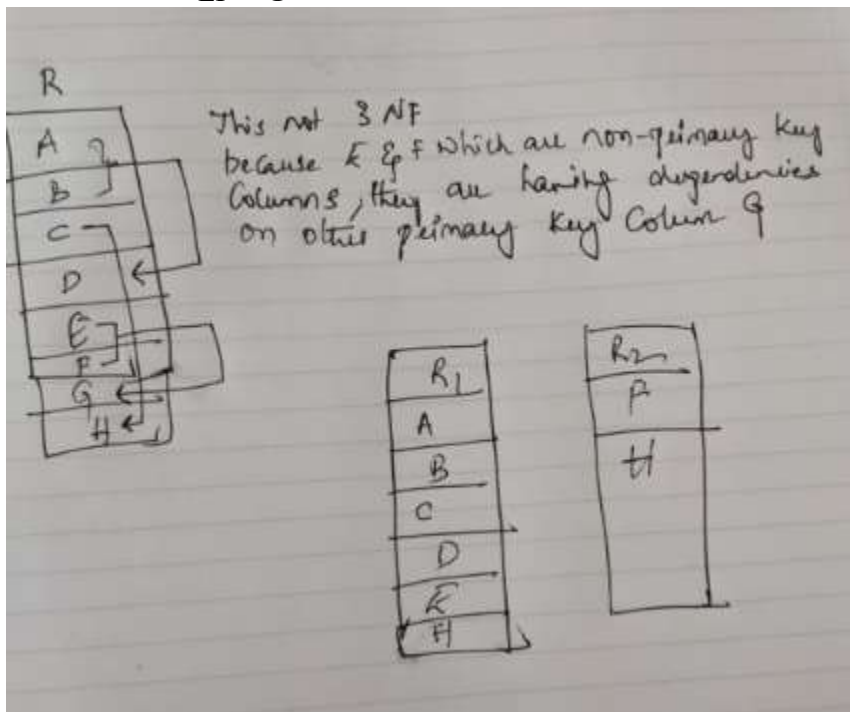 R
A
B
C
D
E
F
G
H
This not 3 NF
because E & F which are non-primary key
Columns, they are having dependencies
on other primary key Column G
R1
A
B
C
D
E
H
R2
F
H